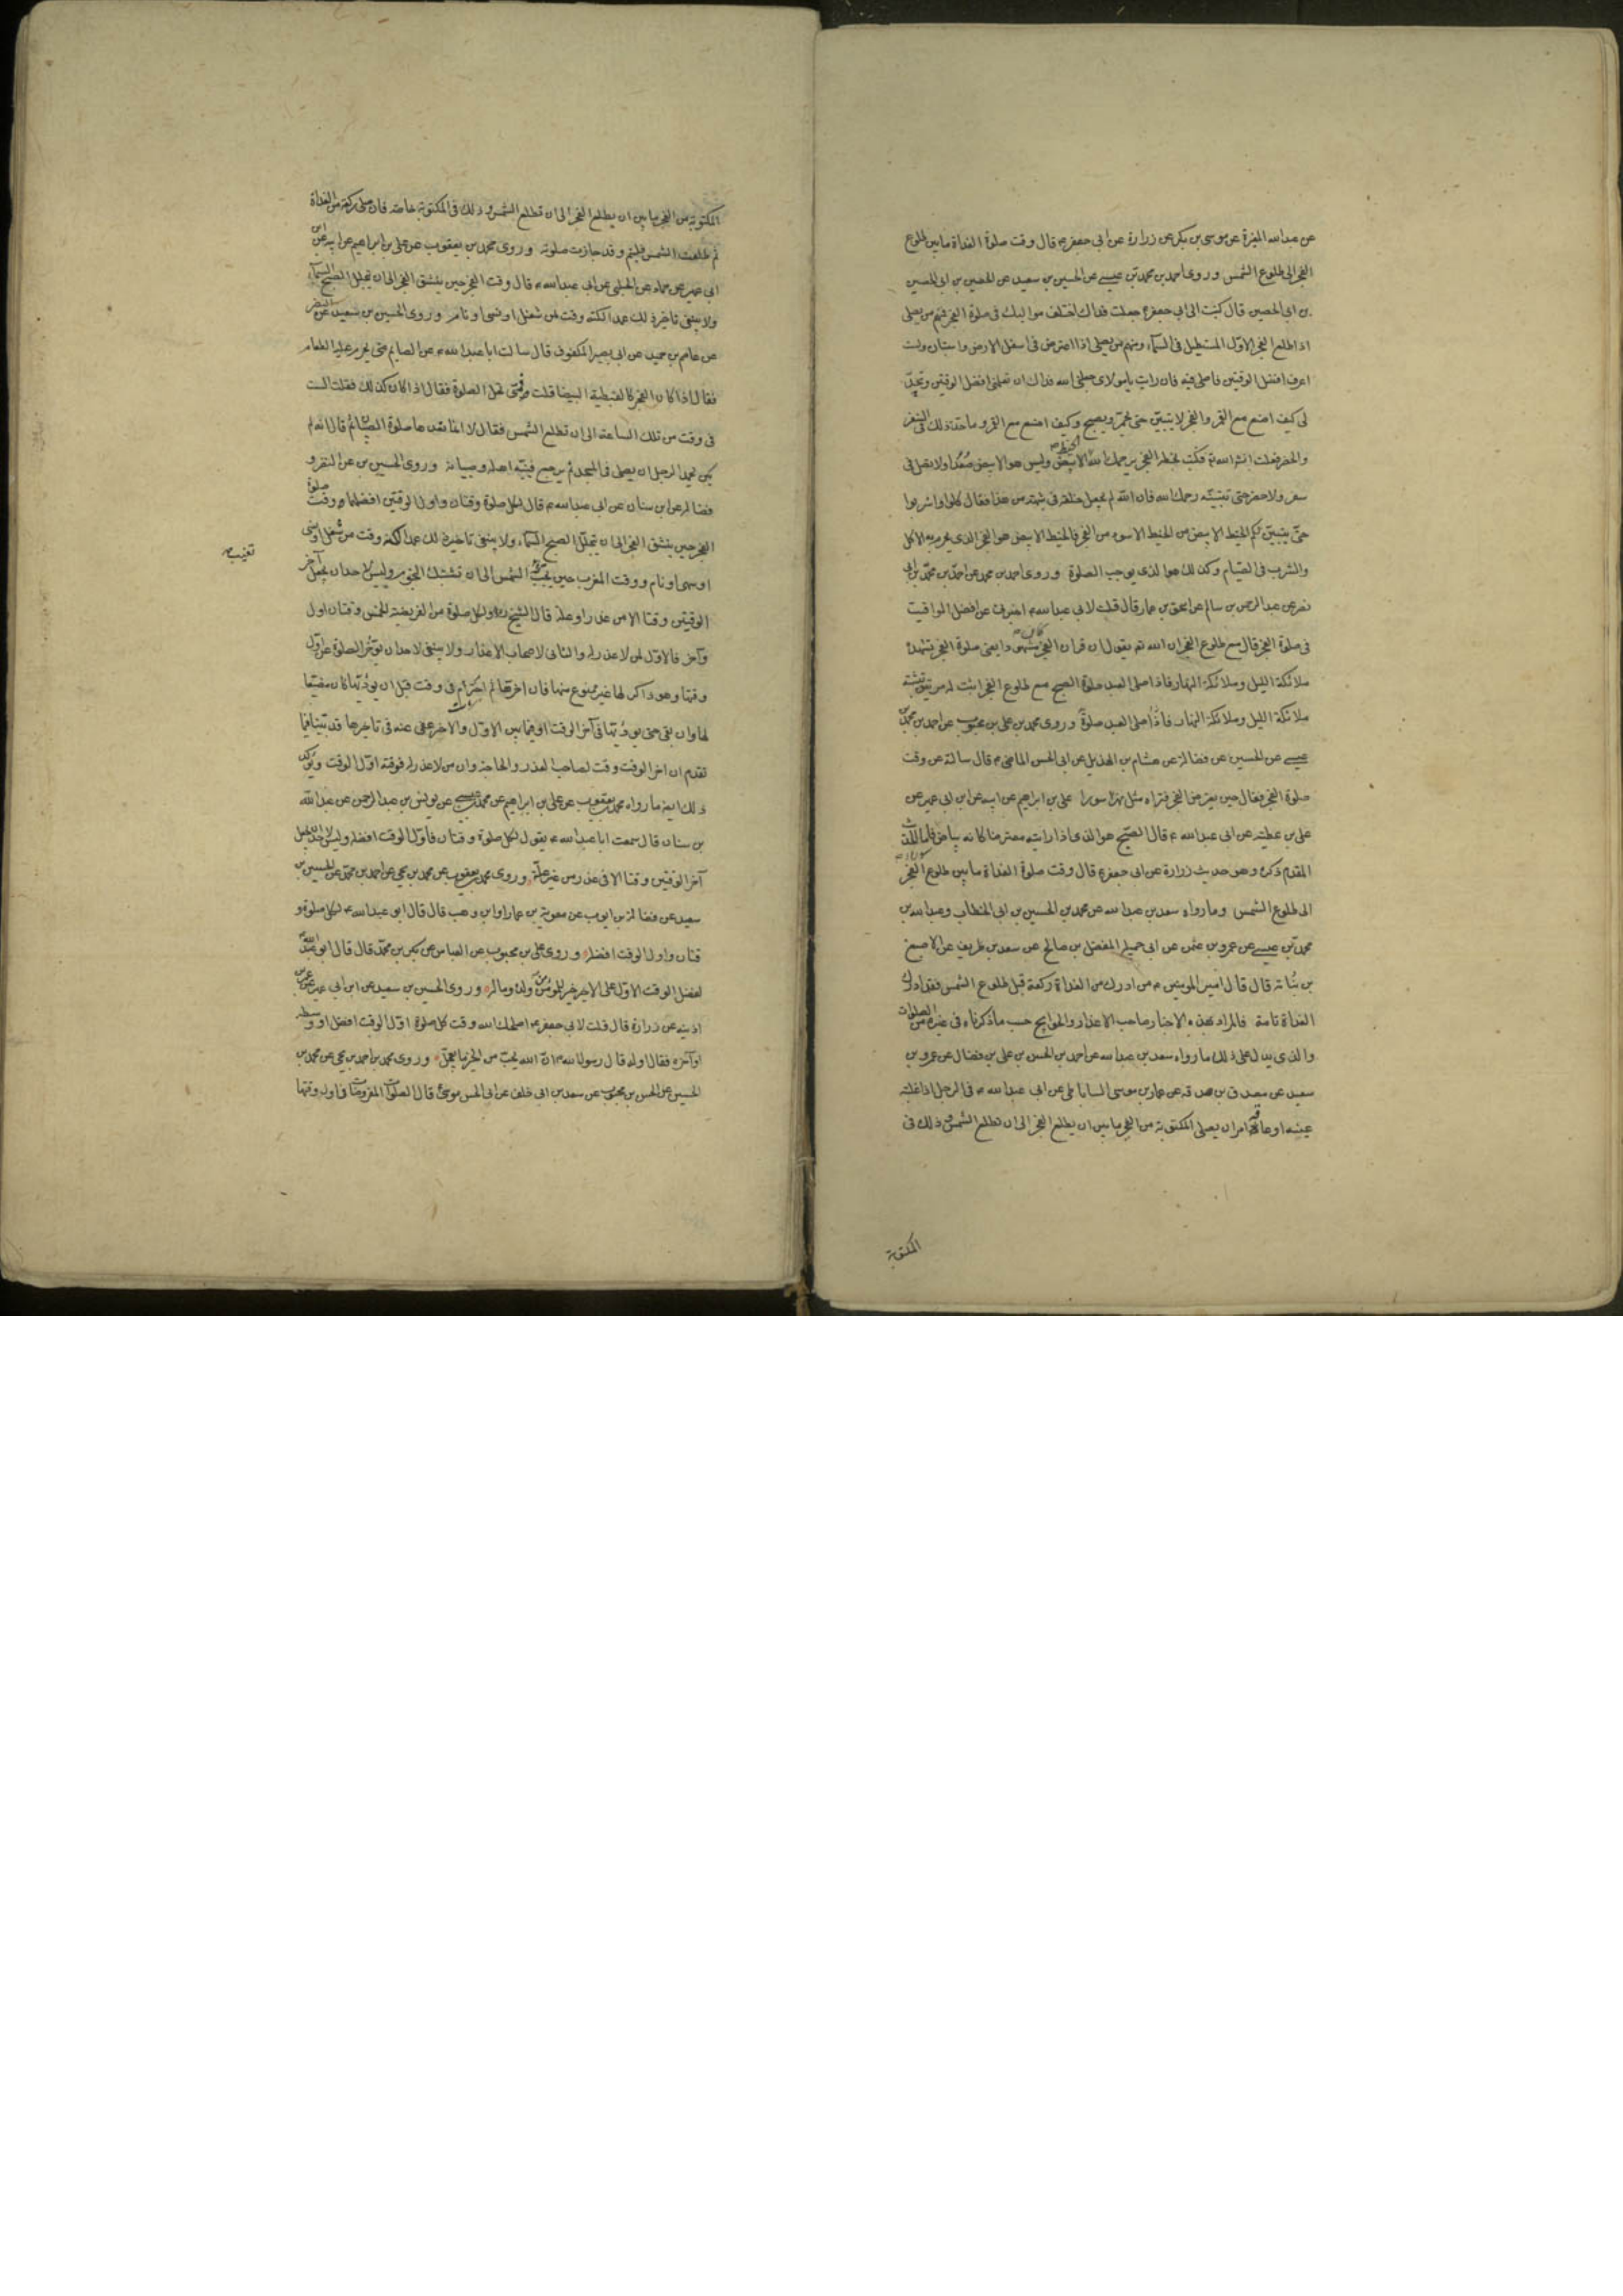 عن عبدالله المغيرة عن موسى بن بكر عن زرارة عن ابى جعفر ع قال وقت صلوة الغداة ما بين طلوع
الفجر الى طلوع الشمس وروى احمد بن محمد بن عيسى عن الحسين بن سعيد عن الحصين بن ابى الحصين
بن ابى الحصين قال كتبت الى ابى جعفر ع جعلت فداك اختلف مواليك فى صلوة الفجر فمنهم من يصلى
اذا طلع الفجر الاول المستطيل فى السماء ومنهم من يصلى اذا اعترض فى اسفل الارض واستبان ولست
اعرف افضل الوقتين فاصلى فيه فان رايت يا مولاى جعلنى الله فداك ان تعلمنى افضل الوقتين وتحد
لى كيف اصنع مع القمر والفجر لا يتبين حتى يحمر ويصبح وكيف اصنع مع القمر وما حد ذلك فى السفر
والحضر فعلت انشاء الله فكتب بخطه الفجر يرحمك الله الخيط الابيض وليس هو الابيض صعدا ولا تصل فى
سفر ولا حضر حتى تتبينه رحمك الله فان الله لم يجعل خلقه فى شبهة من هذا فقال كلوا واشربوا
حتى يتبين لكم الخيط الابيض من الخيط الاسود من الفجر فالخيط الابيض هو الفجر الذى يحرم به الاكل
والشرب فى الصيام وكذلك هو الذى يوجب الصلوة وروى احمد بن محمد عن احمد بن محمد بن ابى
نصر عن عبد الرحمن بن سالم عن اسحق بن عمار قال قلت لابى عبدالله ع اخبرنى عن افضل المواقيت
فى صلوة الفجر قال مع طلوع الفجر ان الله تع يقول ان قران الفجر كان مشهودا يعنى صلوة الفجر تشهده
ملائكة الليل وملائكة النهار فاذا صلى العبد صلوة الصبح مع طلوع الفجر اثبت له مرتين تثبته
ملائكة الليل وملائكة النهار فاذا صلى العبد صلوة وروى محمد بن على بن محبوب عن احمد بن محمد بن
عيسى عن الحسين عن فضالة عن هشام بن الهذيل عن ابى الحسن الماضى ع قال سالته عن وقت
صلوة الفجر فقال حين يعترض الفجر فتراه مثل نهر سورا على بن ابراهيم عن ابيه عن ابن ابى عمير عن
على بن عطية عن ابى عبدالله ع قال الصبح هو الذى اذا رايته معترضا كانه بياض سورا فاما الحديث
المقدم ذكره وهو حديث زرارة عن ابى جعفر ع قال وقت صلوة الغداة ما بين طلوع الفجر
الى طلوع الشمس وما رواه سعد بن عبدالله عن محمد بن الحسين بن ابى الخطاب وعبدالله بن
محمد بن عيسى عن عمرو بن عثمن عن ابى جميلة المفضل بن صالح عن سعد بن طريف عن الاصبغ
بن نباته قال قال امير المومنين ع من ادرك من الغداة ركعة قبل طلوع الشمس فقد ادرك
الغداة تامة فالمراد بهذه الاخبار صاحب الاعذار والحوايج حسب ما ذكرناه فى غيره من الصلوات
والذى يدل على ذلك ما رواه سعد بن عبدالله عن احمد بن الحسن بن على بن فضال عن عمرو بن
سعيد عن مصدق بن صدقه عن عمار بن موسى الساباطى عن ابى عبدالله ع فى الرجل اذا غلبته
عينه او عاقه امر ان يصلى المكتوبة من الفجر ما بين ان يطلع الفجر الى ان تطلع الشمس وذلك فى
المكتوبة
المكتوبة من الفجر ما بين ان يطلع الفجر الى ان تطلع الشمس وذلك فى المكتوبة خاصة فان صلى ركعة من الغداة
ثم طلعت الشمس فليتم وقد جازت صلوته وروى محمد بن يعقوب عن على بن ابراهيم عن ابيه عن ابن
ابى عمير عن حماد عن الحلبى عن ابى عبدالله ع قال وقت الفجر حين ينشق الفجر الى ان يتجلل الصبح السماء
ولا ينبغى تاخير ذلك عمدا لكنه وقت لمن شغل او نسى او نام وروى الحسين بن سعيد عن النضر
عن عاصم بن حميد عن ابى بصير المكفوف قال سالت ابا عبدالله ع عن الصايم متى يحرم عليه الطعام
فقال اذا كان الفجر كالقبطية البيضا قلت فمتى تحل الصلوة فقال اذا كان كذلك فقلت الست
فى وقت من تلك الساعة الى ان تطلع الشمس فقال لا انما نعدها صلوة الصبيان ثم قال انه لم
يكن يحمد الرجل ان يصلى فى المسجد ثم يرجع فينبه اهله وصبيانه وروى الحسين بن عن النضر و
فضاله عن ابن سنان عن ابى عبدالله ع قال لكل صلوة وقتان واول الوقتين افضلهما ووقت صلوة
الفجر حين ينشق الفجر الى ان يتجلل الصبح السماء ولا ينبغى تاخير ذلك عمدا لكنه وقت من شغل او نسى
او سهى او نام ووقت المغرب حين تجب الشمس الى ان تشتبك النجوم وليس لاحد ان يجعل آخر
الوقتين وقتا الا من عذر او علة قال الشيخ ره ولكل صلوة من الفريضة الخمس وقتان اول
وآخر فالاول لمن لا عذر له والثانى لاصحاب الاعذار ولا ينبغى لاحد ان يؤخر الصلوة عن اول
وقتها وهو ذاكر لها غير ممنوع منها فان اخرها ثم اخترم فى وقت قبل ان يؤديها كان مضيعا
لها وان بقى حتى يؤديها فى آخر الوقت او فيما بين الاول والاخر عفى عنه فى تاخيرها قد بينا فيما
تقدم ان اخر الوقت وقت لصاحب العذر والحاجة وان من لا عذر له فوقته اول الوقت ويؤكد
ذلك ايضا ما رواه محمد بن يعقوب عن على بن ابراهيم عن محمد بن عيسى عن يونس بن عبد الرحمن عن عبد الله
بن سنان قال سمعت ابا عبدالله ع يقول لكل صلوة وقتان فاول الوقت افضله وليس لاحد ان يجعل
آخر الوقتين وقتا الا فى عذر من غير علة وروى محمد بن يعقوب عن محمد بن يحيى عن احمد بن محمد عن الحسين بن
سعيد عن فضالة بن ايوب عن معوية بن عمار او ابن وهب قال قال ابو عبدالله ع لكل صلوة و
قتان واول الوقت افضله وروى على بن محبوب عن العباس عن بكر بن محمد قال قال ابو عبد الله
لفضل الوقت الاول على الاخر خير للمؤمن من ولده وماله وروى الحسين بن سعيد عن ابن ابى عمير عن عمر بن
اذينه عن زرارة قال قلت لابى جعفر ع اصلحك الله وقت كل صلوة اول الوقت افضل او وسطه
او آخره فقال اوله قال رسول الله ص ان الله يحب من الخير ما يعجل وروى محمد بن احمد بن يحيى عن محمد بن
الحسين عن الحسن بن محبوب عن سعد بن ابى خلف عن ابى الحسن موسى ع قال الصلوات المفروضات فى اول وقتها